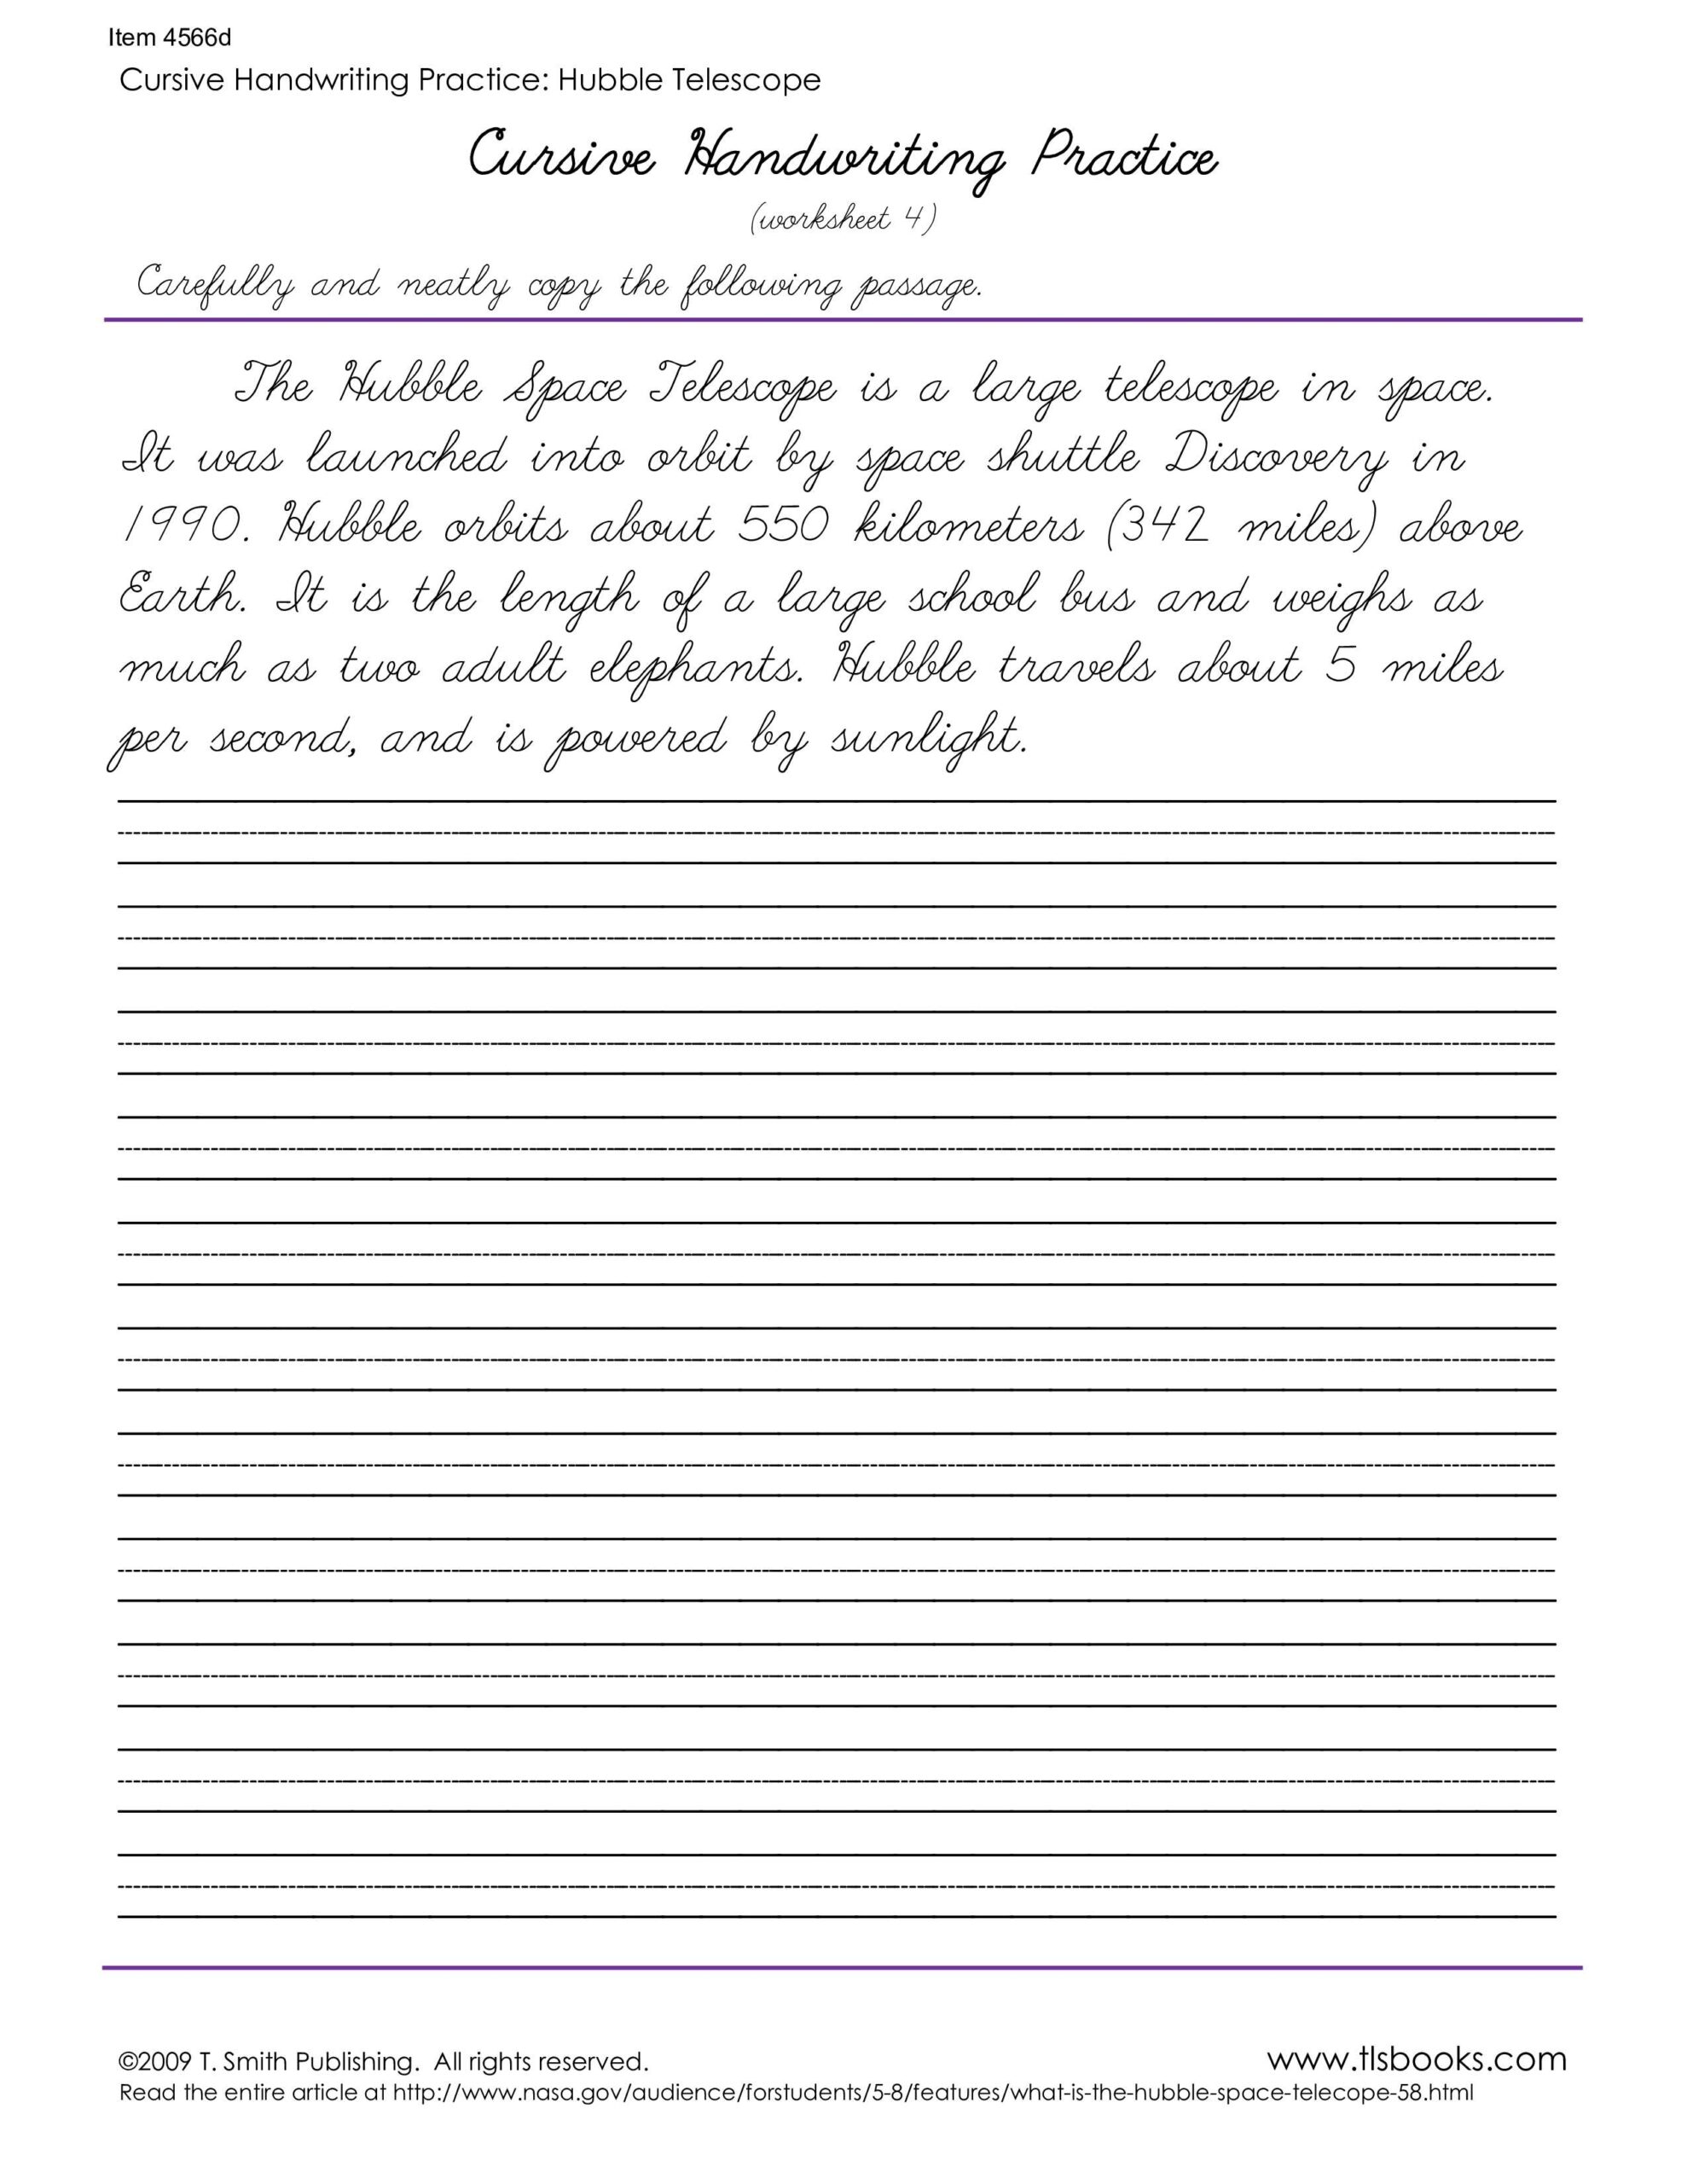 Item 4566d
Cursive Handwriting Practice: Hubble Telescope
Cursive Handwriting Practice
(worksheet 4)
Carefully and neatly copy the following passage.
The Hubble Space Telescope is a large telescope in space.
It was launched into orbit by space shuttle Discovery in
1990. Hubble orbits about 550 kilometers (342 miles) above
Earth. It is the length of a large school bus and weighs as
much as two adult elephants. Hubble travels about 5 miles
per second, and is powered by sunlight.
©2009 T. Smith Publishing. All rights reserved.
www.tlsbooks.com
Read the entire article at http://www.nasa.gov/audience/forstudents/5-8/features/what-is-the-hubble-space-telecope-58.html